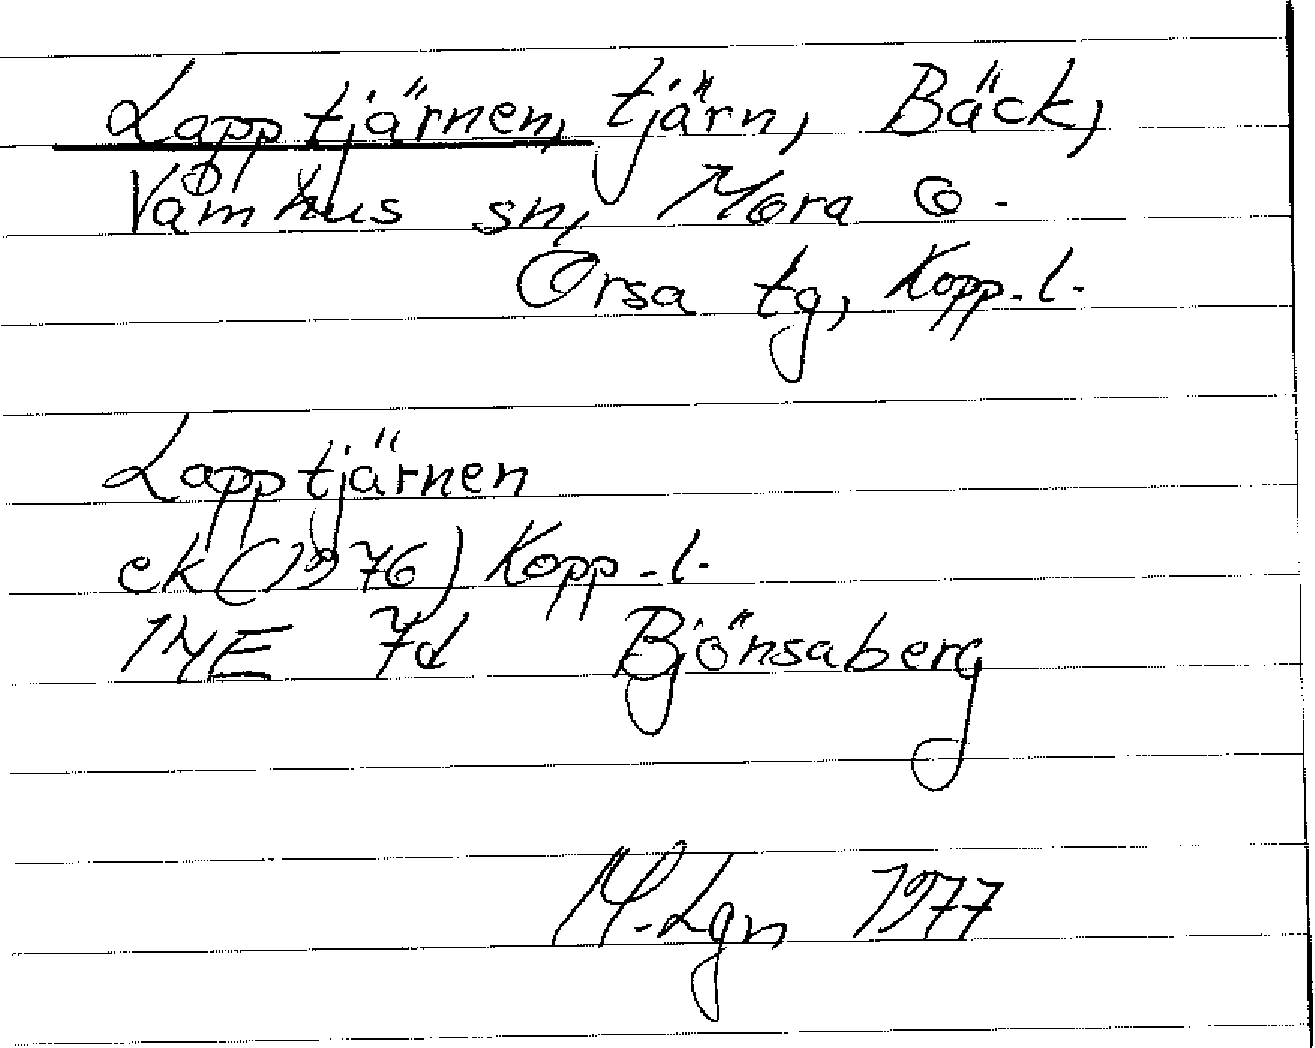 Lapptjärnen, tjärn, Bäck,
Våmhus sn, Mora o.
Orsa tg, Kopp.l.
Lapptjärnen
ek(1976) Kopp.l.
14E 7d Björnsaberg
M.Lgn 1977